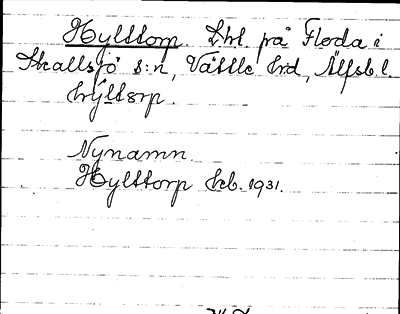 Hylttorp. Lht på Floda i
Skallsjö s:n, Vättle hd, Älfsb. l.
Nynamn
Hylttorp kb. 1931.